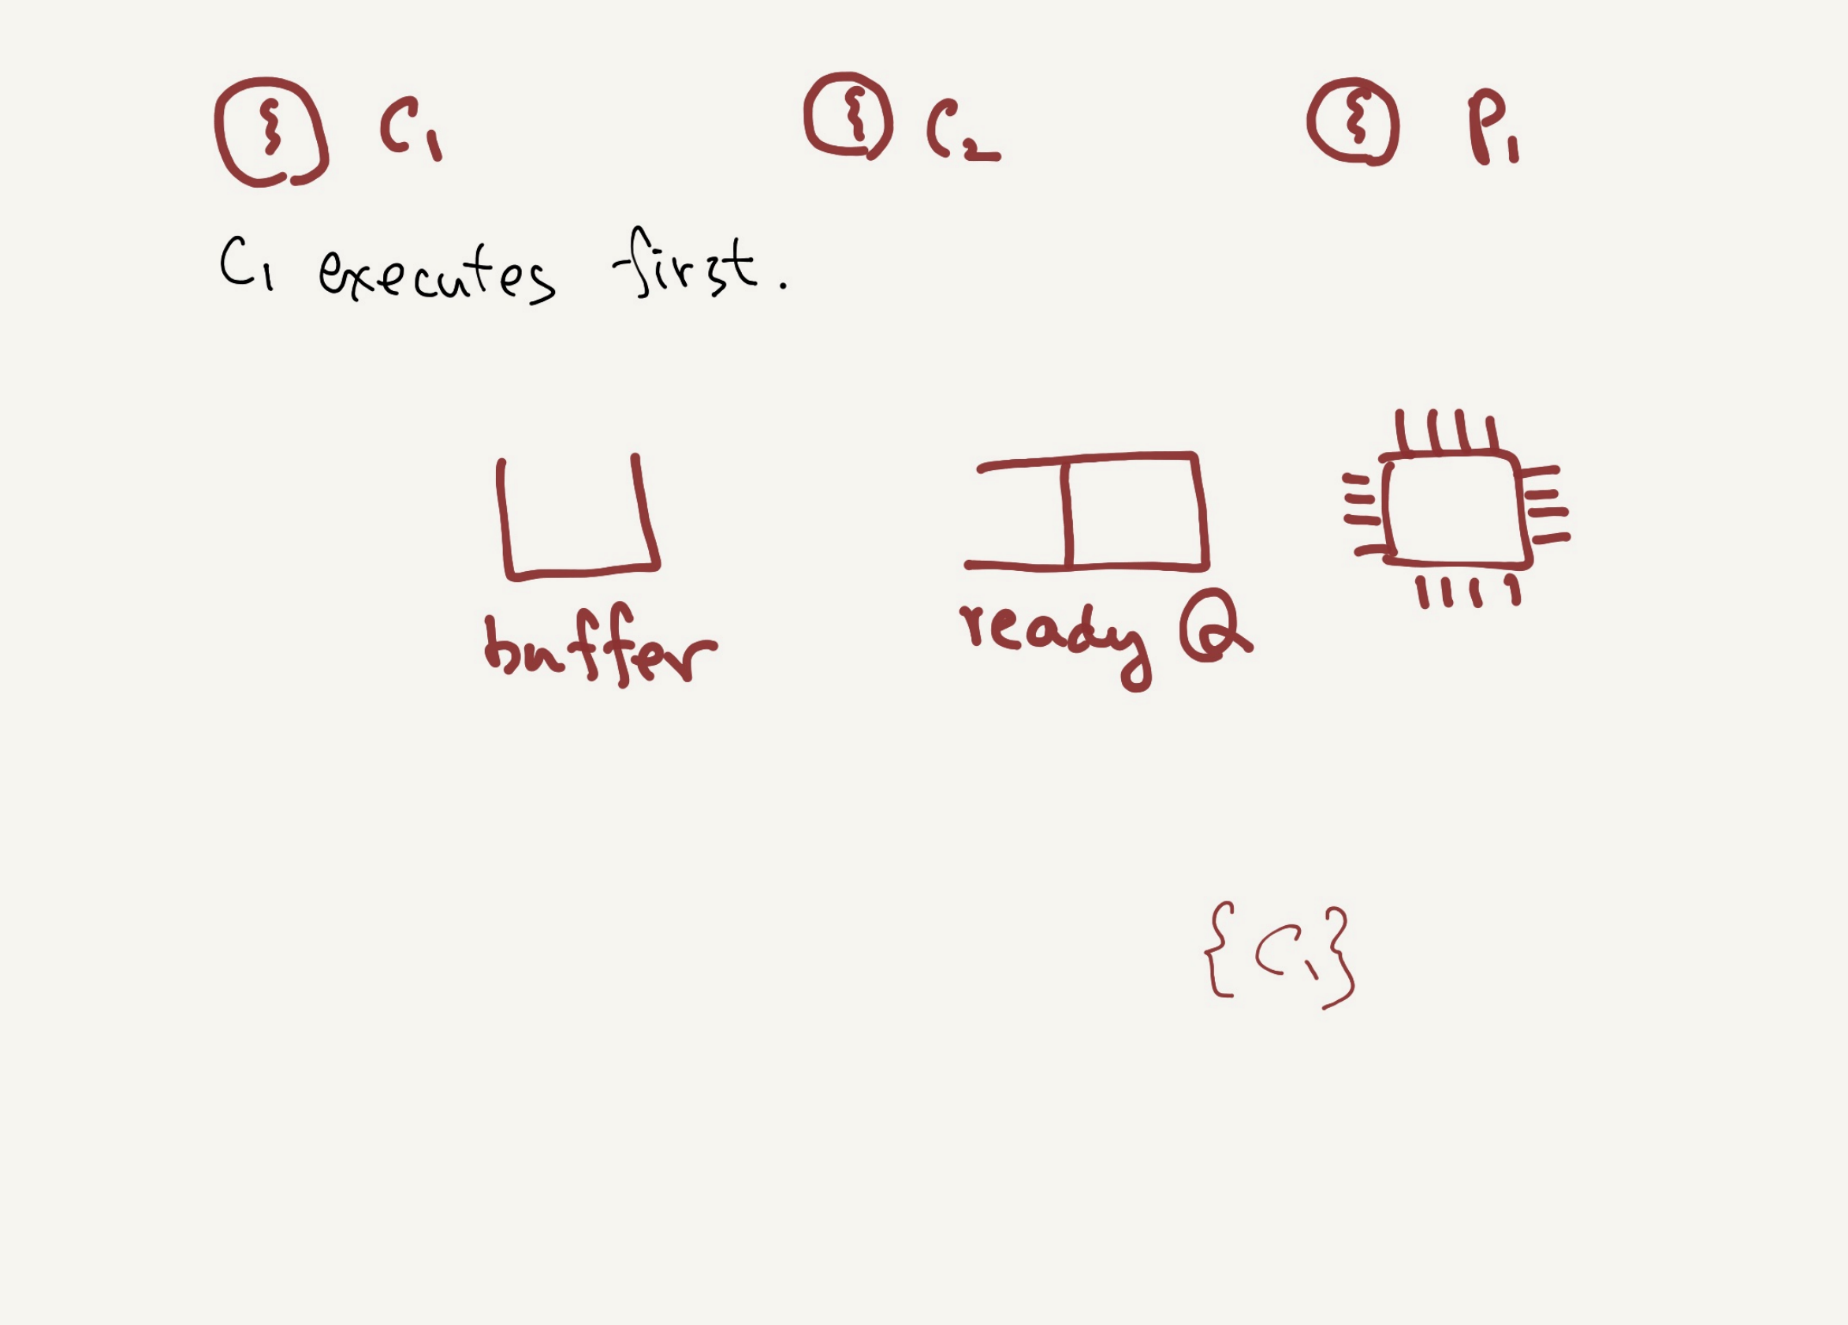 C1 C2 P1
C1 executes first.
buffer ready Q
{C1}